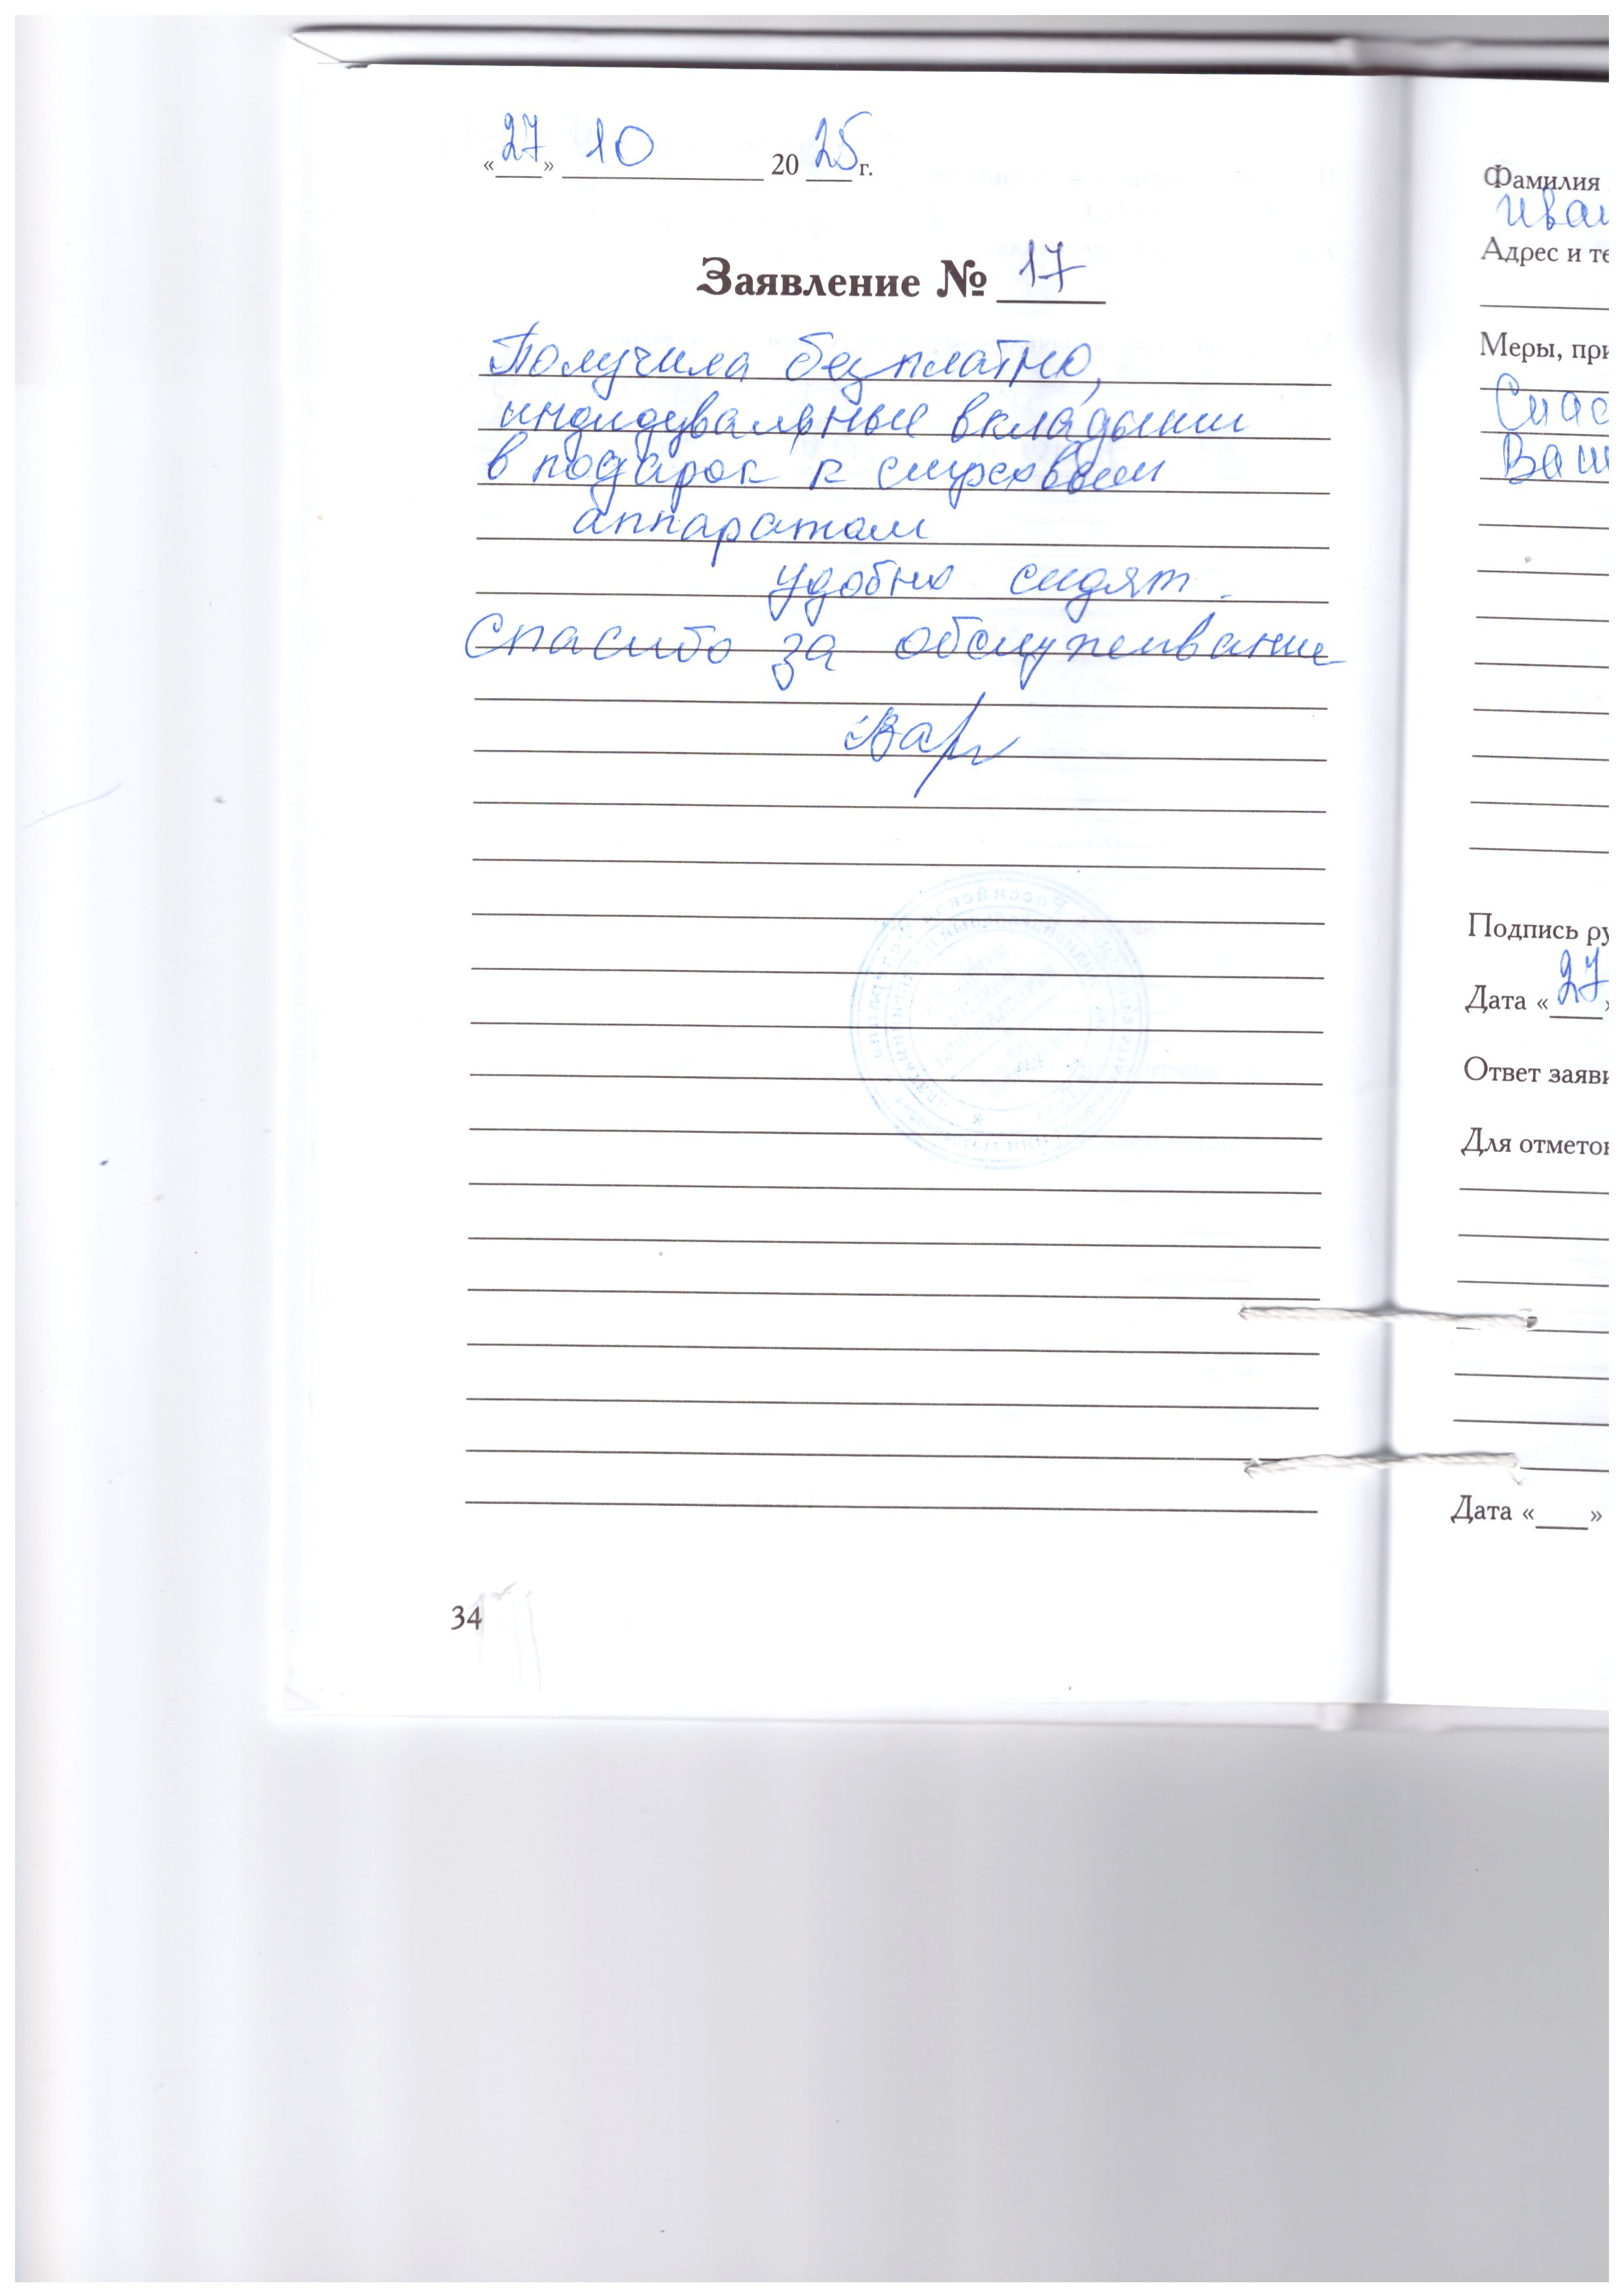 «27» 10 2025 г.
Заявление № 17
Получила безплатно,
индидувальные вкладыши
в подарок к слуховым
аппаратам
удобно сидят.
Спасибо за обслуживание
34
Фамилия
Адрес и те
Меры, при
Спас
Ваш
Подпись ру
Дата «27»
Ответ заяви
Для отметок
Дата «___»